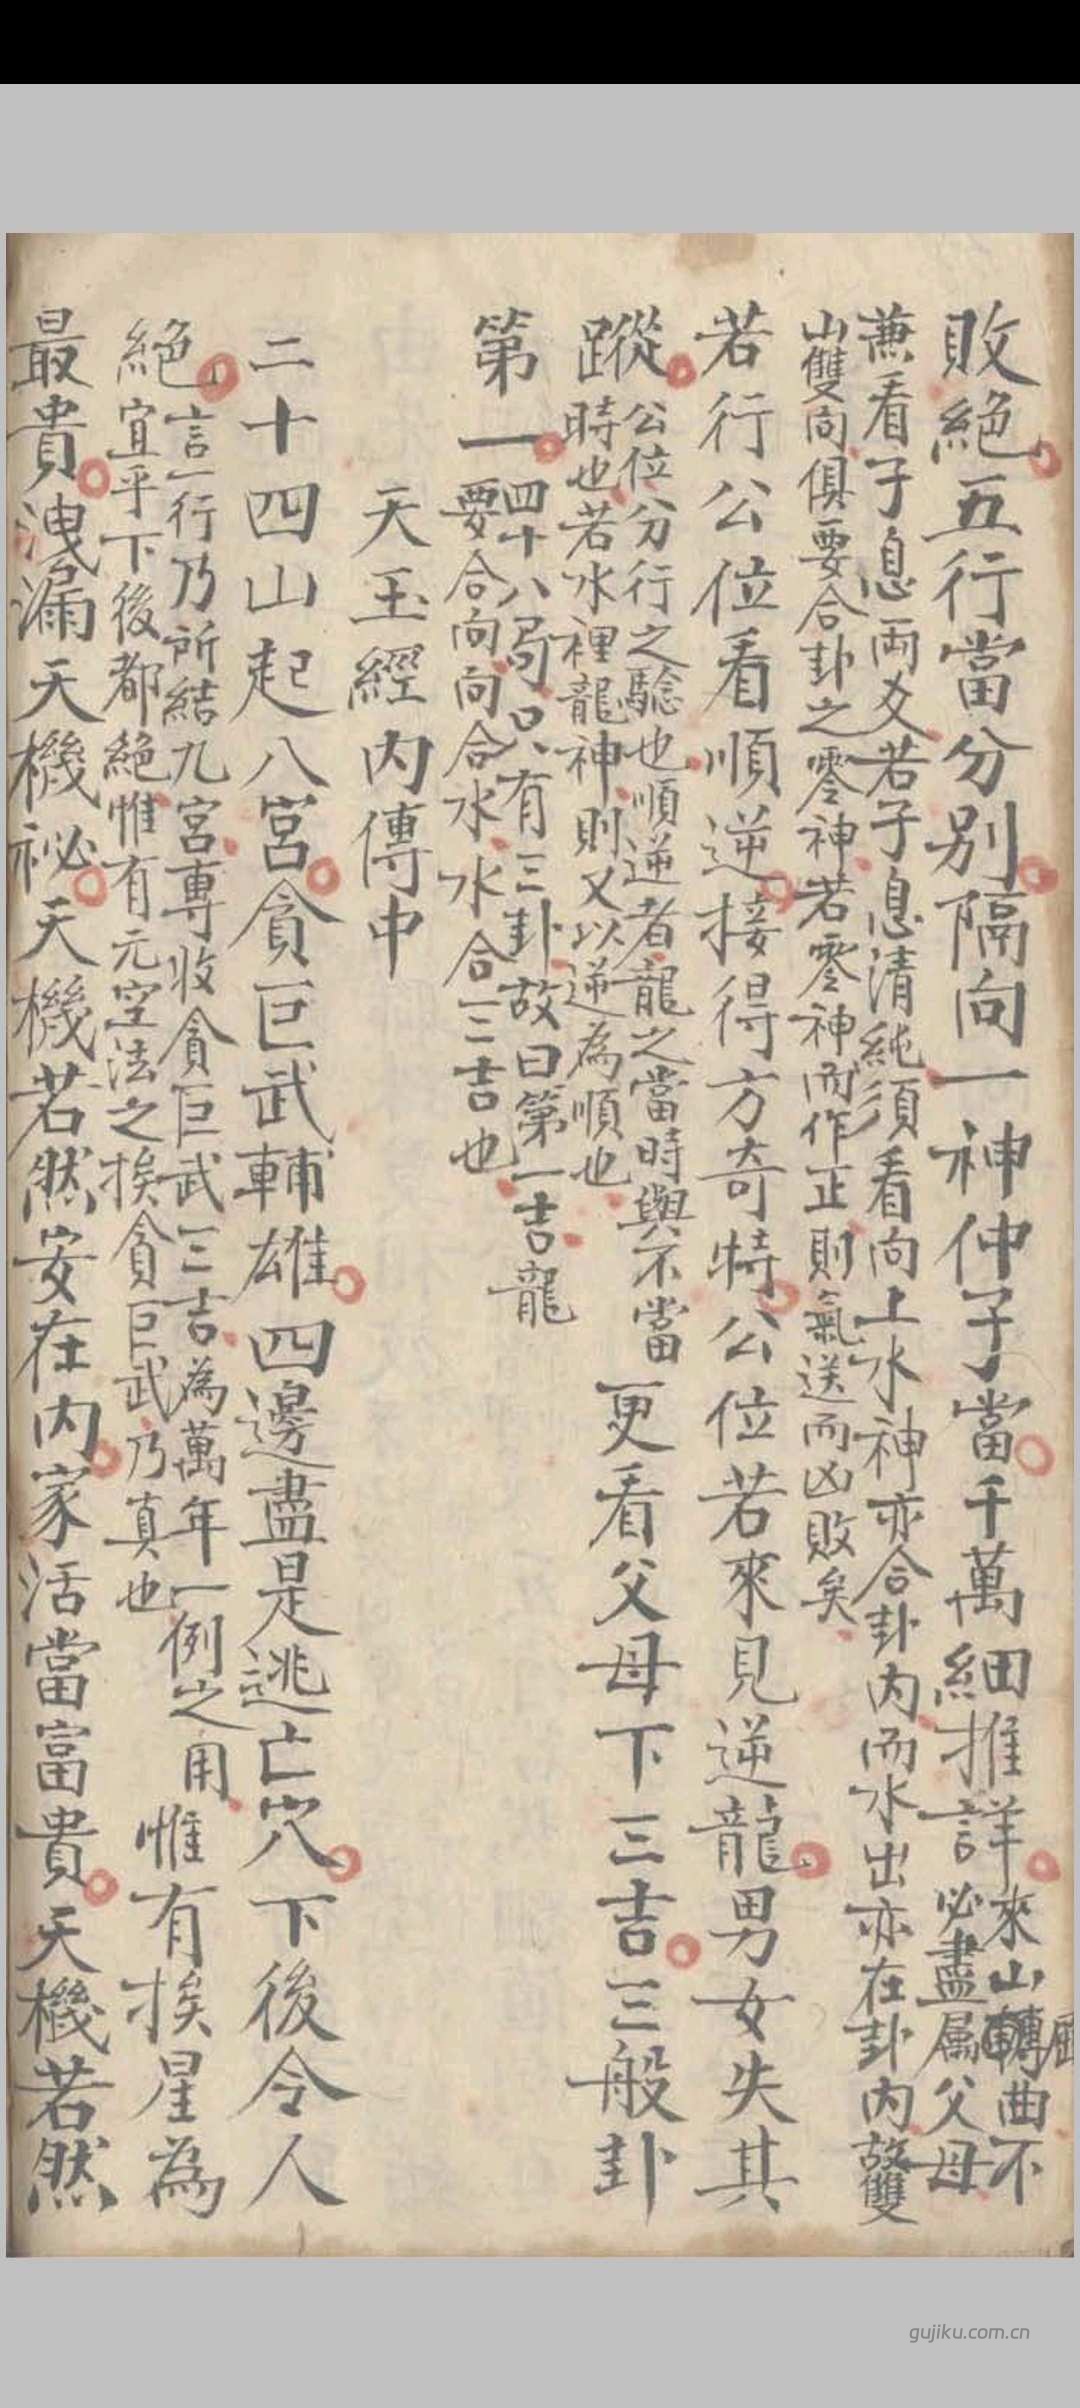 敗絕五行當分別隔向一神仲子當千萬細推詳來山轉曲不
必盡屬父母
蕪看子息兩爻若子息清純須看向上水神亦合卦內而水出亦在卦內故雙
山雙向俱要合卦之零神若零神而作正則氣送而凶敗矣
若行公位看順逆接得方奇特公位若來見逆龍男女失其
蹤公位分行之驗也順逆者龍之當時與不當
時也若水裡龍神則又以逆為順也更看父母下三吉三般卦
第一四十八局只有三卦故曰第一吉龍
要合向向合水水合三吉也
天玉經內傳中
二十四山起八宮貪巨武輔雄四邊盡是逃亡穴下後令人
絕言一行乃所結九宮專收貪巨武三吉為萬年一例之用
宜乎下後都絕惟有元空法之挨貪巨武乃真也惟有挨星為
最貴洩漏天機秘天機若然安在內家活當富貴天機若然
gujiku.com.cn